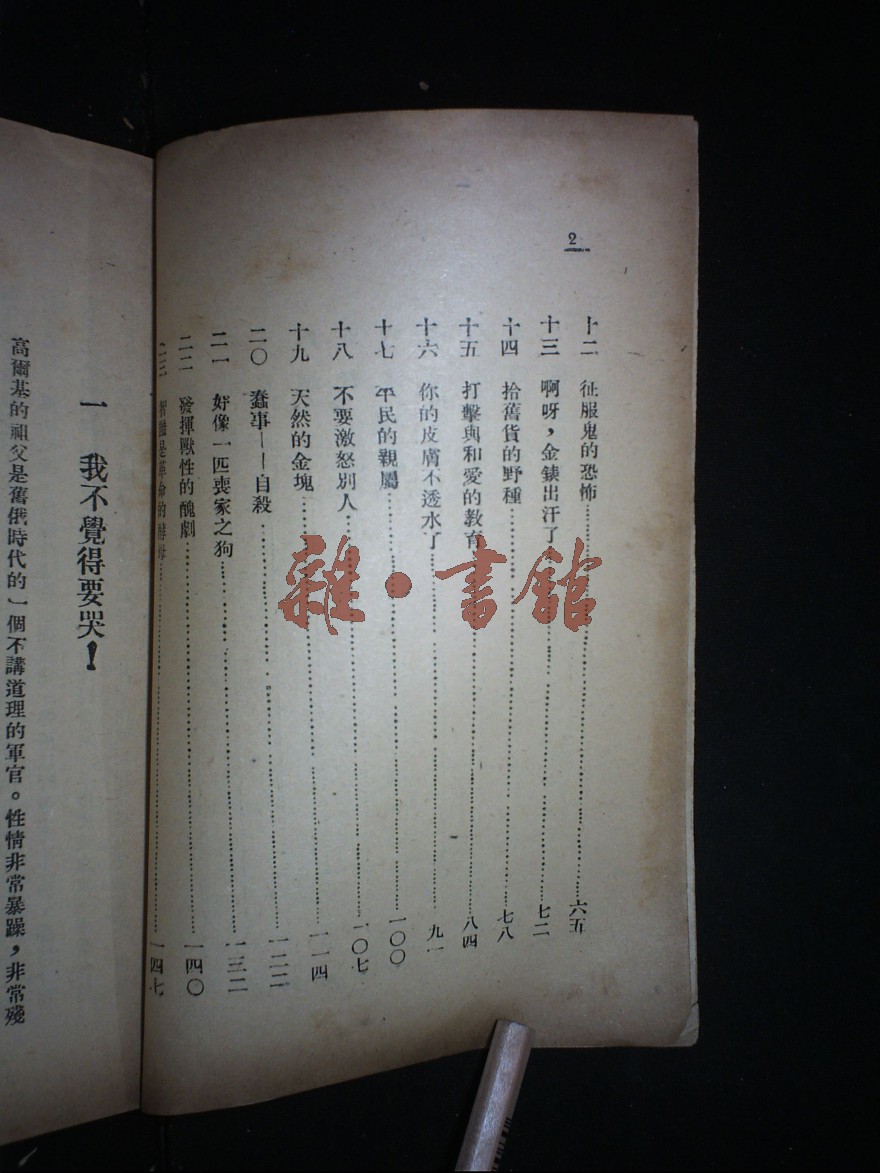 2
十二 征服鬼的恐怖……六五
十三 啊呀，金錶出汗了……七二
十四 拾舊貨的野種……七八
十五 打擊與和愛的教育……八四
十六 你的皮膚不透水了……九一
十七 平民的親屬……一〇〇
十八 不要激怒別人……一〇七
十九 天然的金塊……一一四
二〇 蠢事——自殺……一二二
二一 好像一匹喪家之狗……一三二
二二 發揮獸性的醜劇……一四〇
二三 是革命的酵母……一四七
一 我不覺得要哭！
高爾基的祖父是舊俄時代的一個不講道理的軍官。性情非常暴躁，非常殘
雜·書館